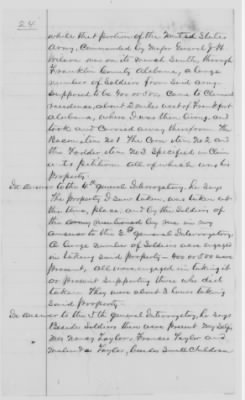 24
while that portion of the United States
Army, Commanded by Major General J. H.
Wilson was on its march South, through
Franklin County Alabama, a large
number of Soldiers from said Army
Supposed to be 400 or 500, Came to Claimants
residence, about 2 miles west of Frankfort
Alabama, where I was then living, and
took and Carried away therefrom The
Bacon, item No 1, The Corn item No 2 and
the Fodder item No 3 Specified in Claim
ants Petition. All of which was his
Property.
In answer to the 4th General Interrogatory, he Says
The property I saw taken, was taken at
the time, place, and by the Soldiers of
the army mentioned by me in my
answer to the 3rd General Interrogatory.
A large number of Soldiers were engaged
in taking said property - 400 or 500 were
present, All were engaged in taking it
or present Supporting those who did
taken. They were about 3 hours taking
Said Property.
In answer to the 5th general Interrogatory, he says
Besides Soldiers there were present My Self,
Mrs Nancy Taylor, Francis Taylor and
Taylor, besides Small Children